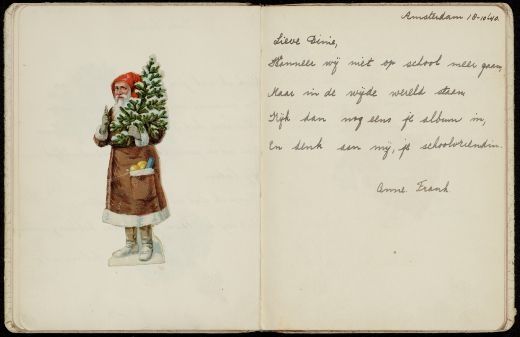 Amsterdam 18-10-'40.
Lieve Dinie,
Wanneer wij niet op school meer gaan,
Maar in de wijde wereld staan,
Kijk dan nog eens je album in,
En denk aan mij, je schoolvriendin.
Anne Frank.